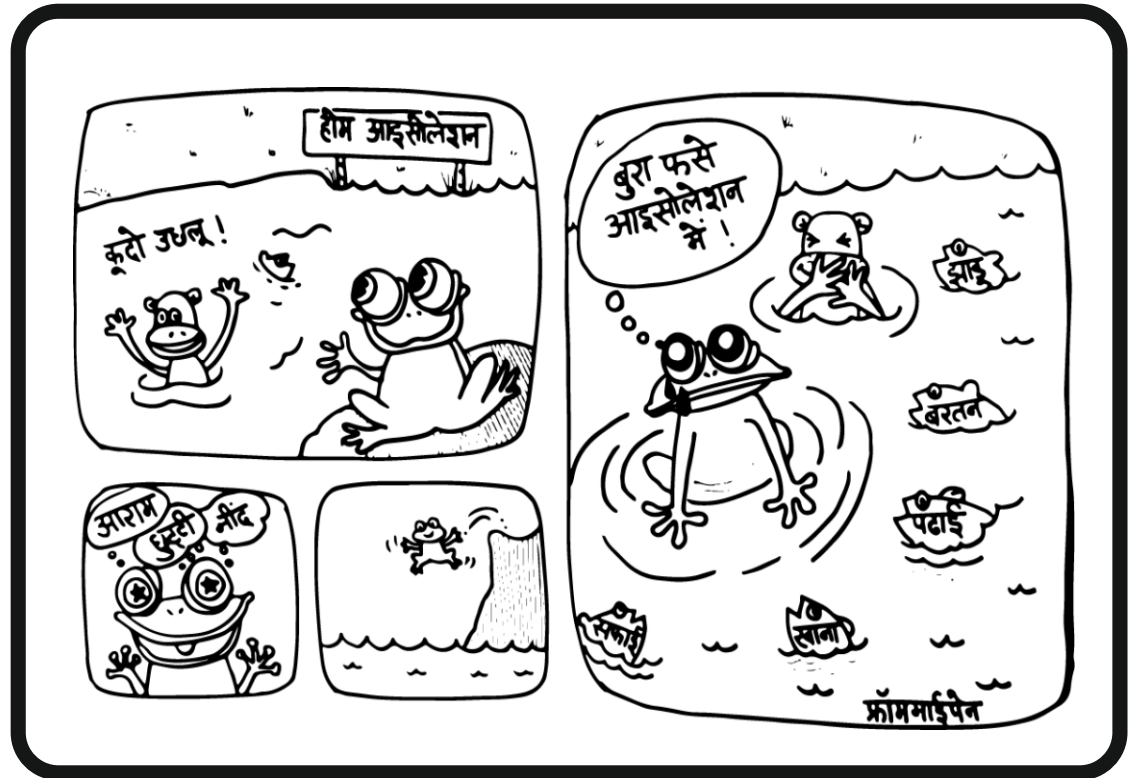 होम आइसोलेशन
कूदो उछलू!
आराम
छुट्टी
नींद
बुरा फसे
आइसोलेशन
में!
झाड़ू
बरतन
पढाई
सफाई
खाना
फ्रॉममाईपेन